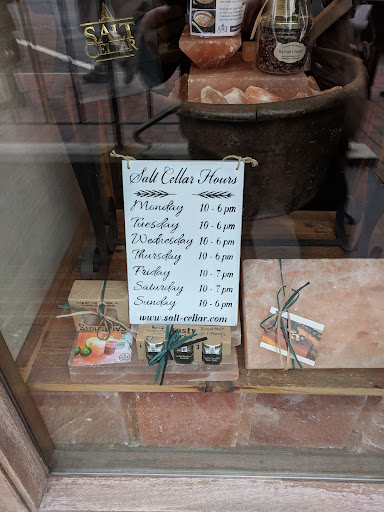 SALT
CELLAR
Salt Cellar Hours
Monday 10 - 6 pm
Tuesday 10 - 6 pm
Wednesday 10 - 6 pm
Thursday 10 - 6 pm
Friday 10 - 7 pm
Saturday 10 - 7 pm
Sunday 10 - 6 pm
www.salt-cellar.com
Breakfast